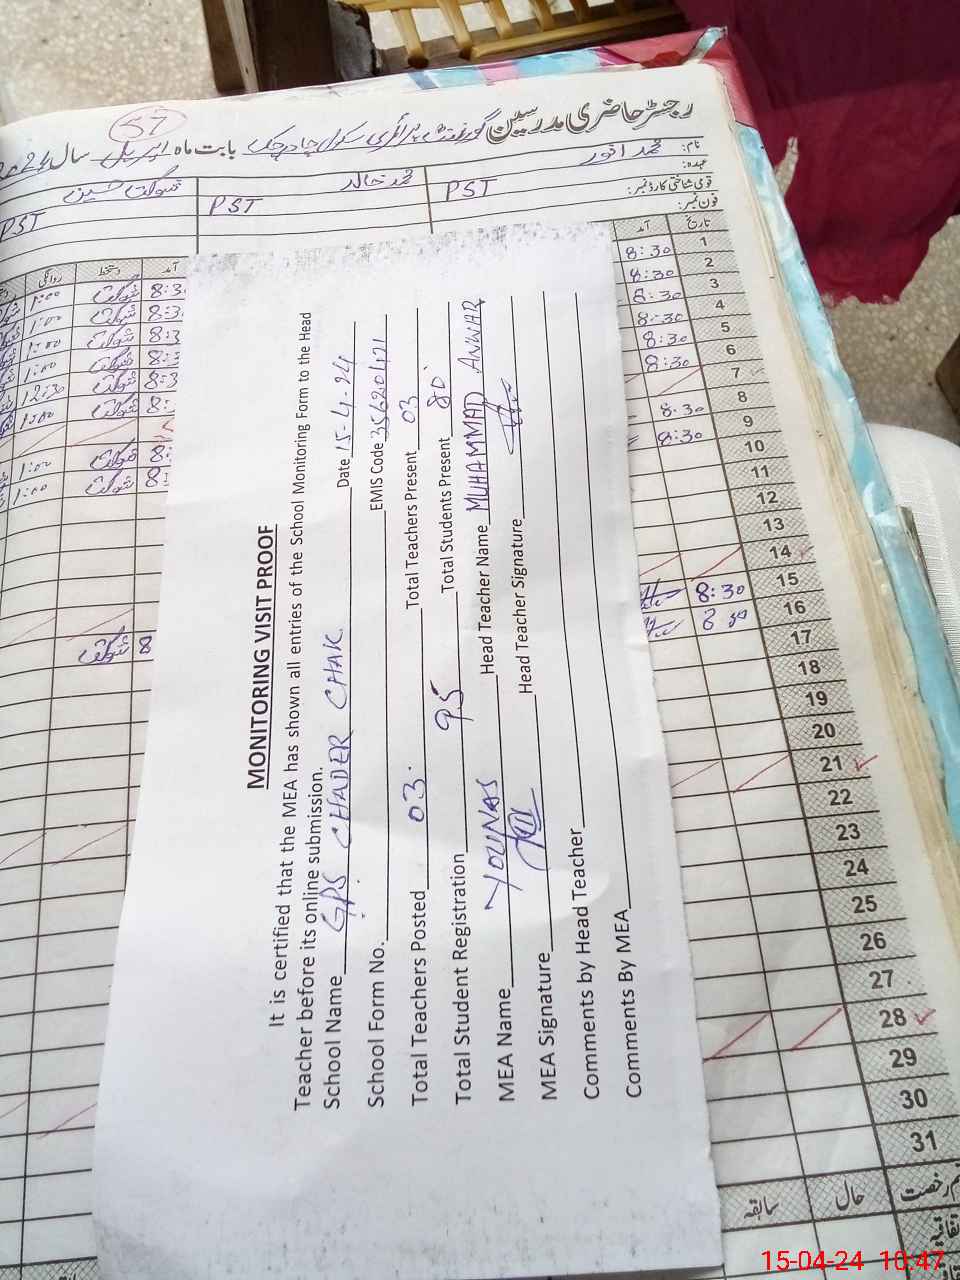 57
رجسٹر حاضری مدرسین گورنمنٹ پرائمری سکول چادر چک بابت ماہ اپریل سال
نام: محمد انور محمد خالد شوکت حسین
عہدہ: PST PST PST
قومی شناختی کارڈ نمبر:
فون نمبر:
تاریخ آمد آمد دستخط روانگی
1 8:30 8:3 شوکت 1:00
2 8:30 8:3 شوکت 1:00
3 8:30 8:3 شوکت 1:00
4 8:30 8:3 شوکت 1:00
5 8:30 8:3 شوکت 12:30
6 8:30 8: شوکت 1:00
7
8 8:30 8: شوکت 1:00
9 8:30 8: شوکت 1:00
10
11
12
13
14
15 8:30 8 شوکت
16 8 30
17
18
19
20
21
22
23
24
25
26
27
28
29
30
31
حال سابقہ
MONITORING VISIT PROOF
It is certified that the MEA has shown all entries of the School Monitoring Form to the Head
Teacher before its online submission.
School Name GPS CHADER CHAK Date 15-4-24
School Form No. EMIS Code 35620421
Total Teachers Posted 03 Total Teachers Present 03
Total Student Registration 95 Total Students Present 80
MEA Name YOUNAS Head Teacher Name MUHAMMAD ANWAR
MEA Signature Head Teacher Signature
Comments by Head Teacher
Comments By MEA
15-04-24 10:47